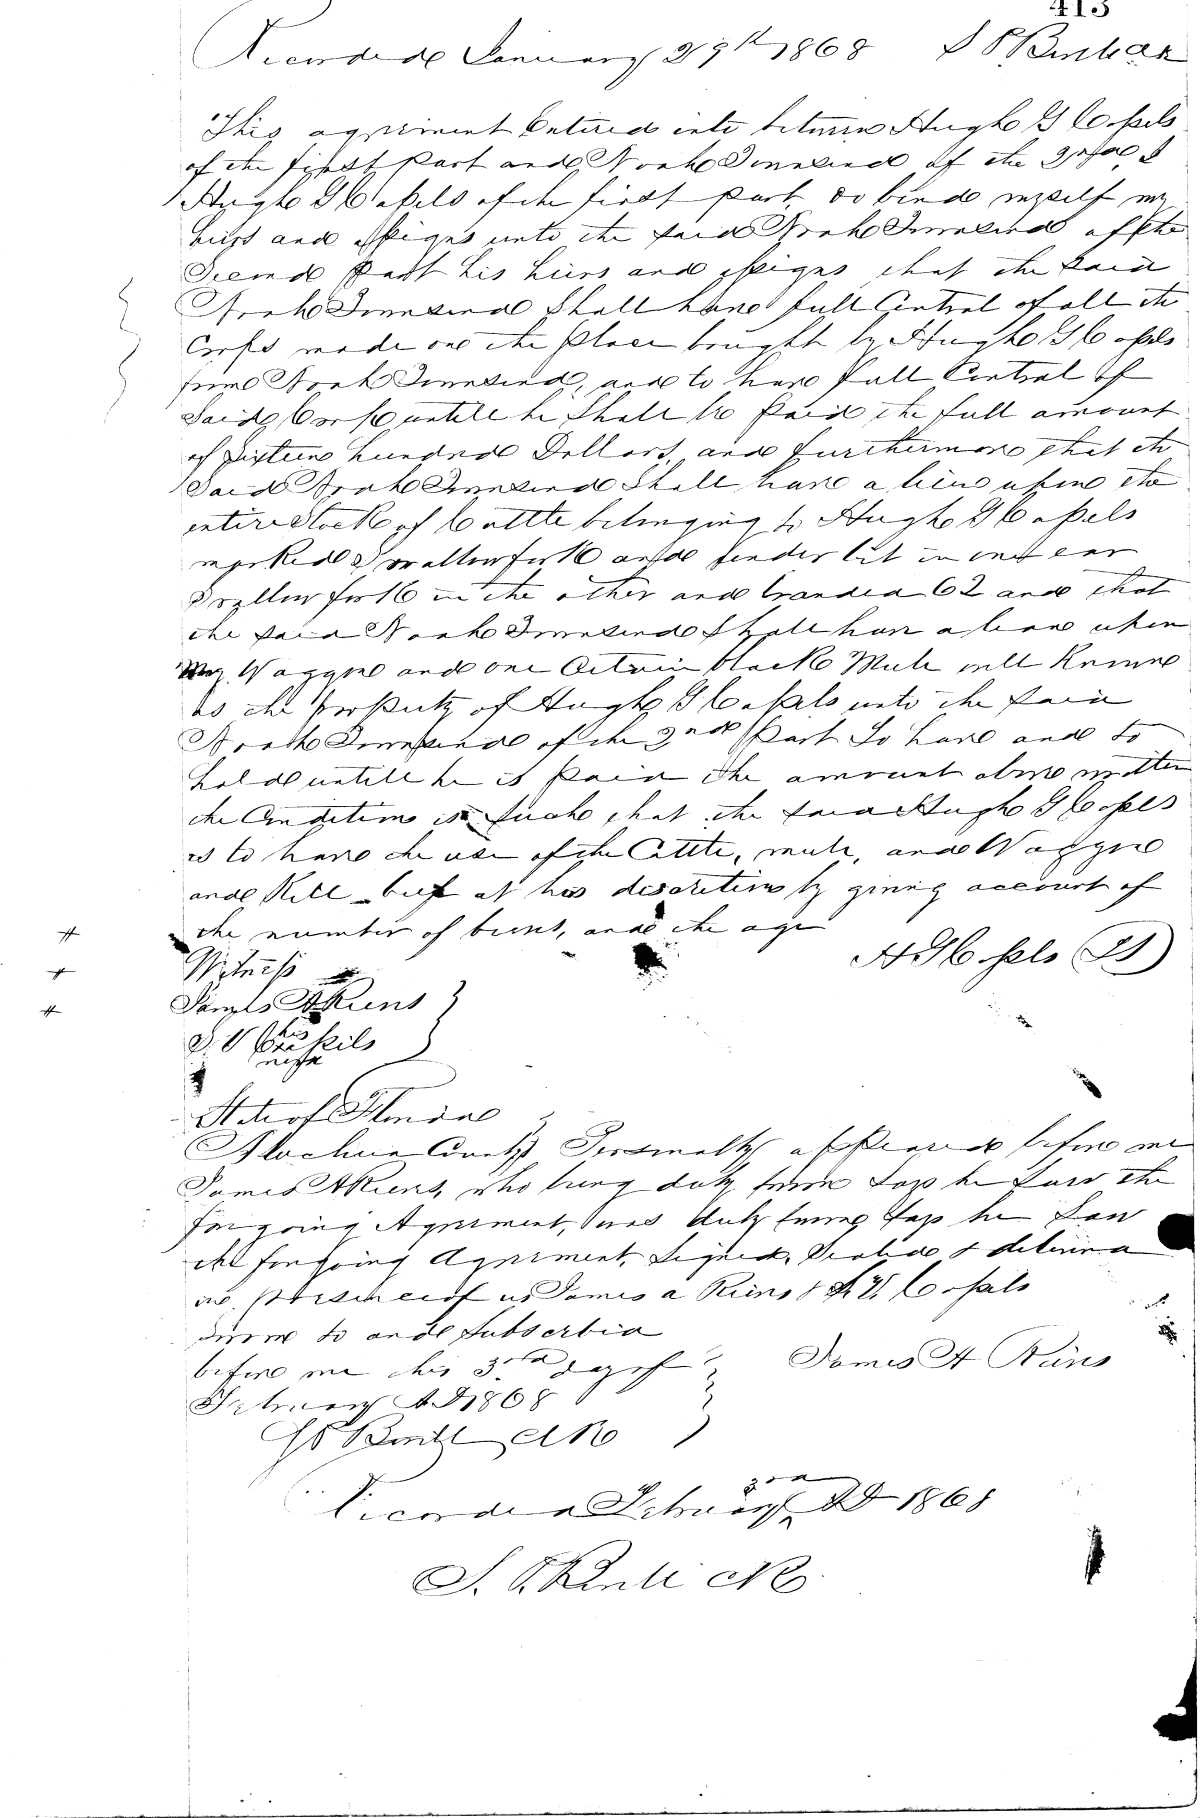 413
Recorded January 29th 1868
This agreement Entered into between Hugh G Cassels
of the first Part and Noah Townsend of the 2nd I
Hugh G Cassels of the first part do bind myself my
heirs and assigns unto the said Noah Townsend of the
Second Part his heirs and assigns that the Said
Noah Townsend Shall have full Control of all the
Corps made one the place bought by Hugh G Cassels
from Noah Townsend, and to have full Control of
Said untill he Shall be Paid the full amount
of Sixteen hundred Dollars, and furthermore that the
Said Noah Townsend Shall have a lien upon the
entire Stock of Cattle belonging to Hugh G Cassels
marked Swallowfork and under bit in one ear
Swallow fork in the other and branded 62 and that
the said Noah Townsend Shall have a leane upon
my Waggne and one Certain black Mule well Knowne
as the property of Hugh G Cassels unto the said
Noah Townsend of the 2nd Part To have and to
hold untill he is Paid the amount above written
the Condition is Such that the said Hugh G Cassels
is to have the use of the Cattle, mule, and Waggne
and Kill beef at his discretion by giving account of
the number of , and the age
H G Cassels
Witness
James A
his
mark
State of Florida
Alachua County Personally appeared before me
James A , who being duly sworn Says he Saw the
forgoing Agreement, was duly sworne Says he Saw
the forgoing Agreement, Signed, Sealed & delivered
in presence of us James A & Cassels
Sworne to and Subscribed
before me this 3rd day of James A
February A D 1868
Recorded February 3rd AD 1868